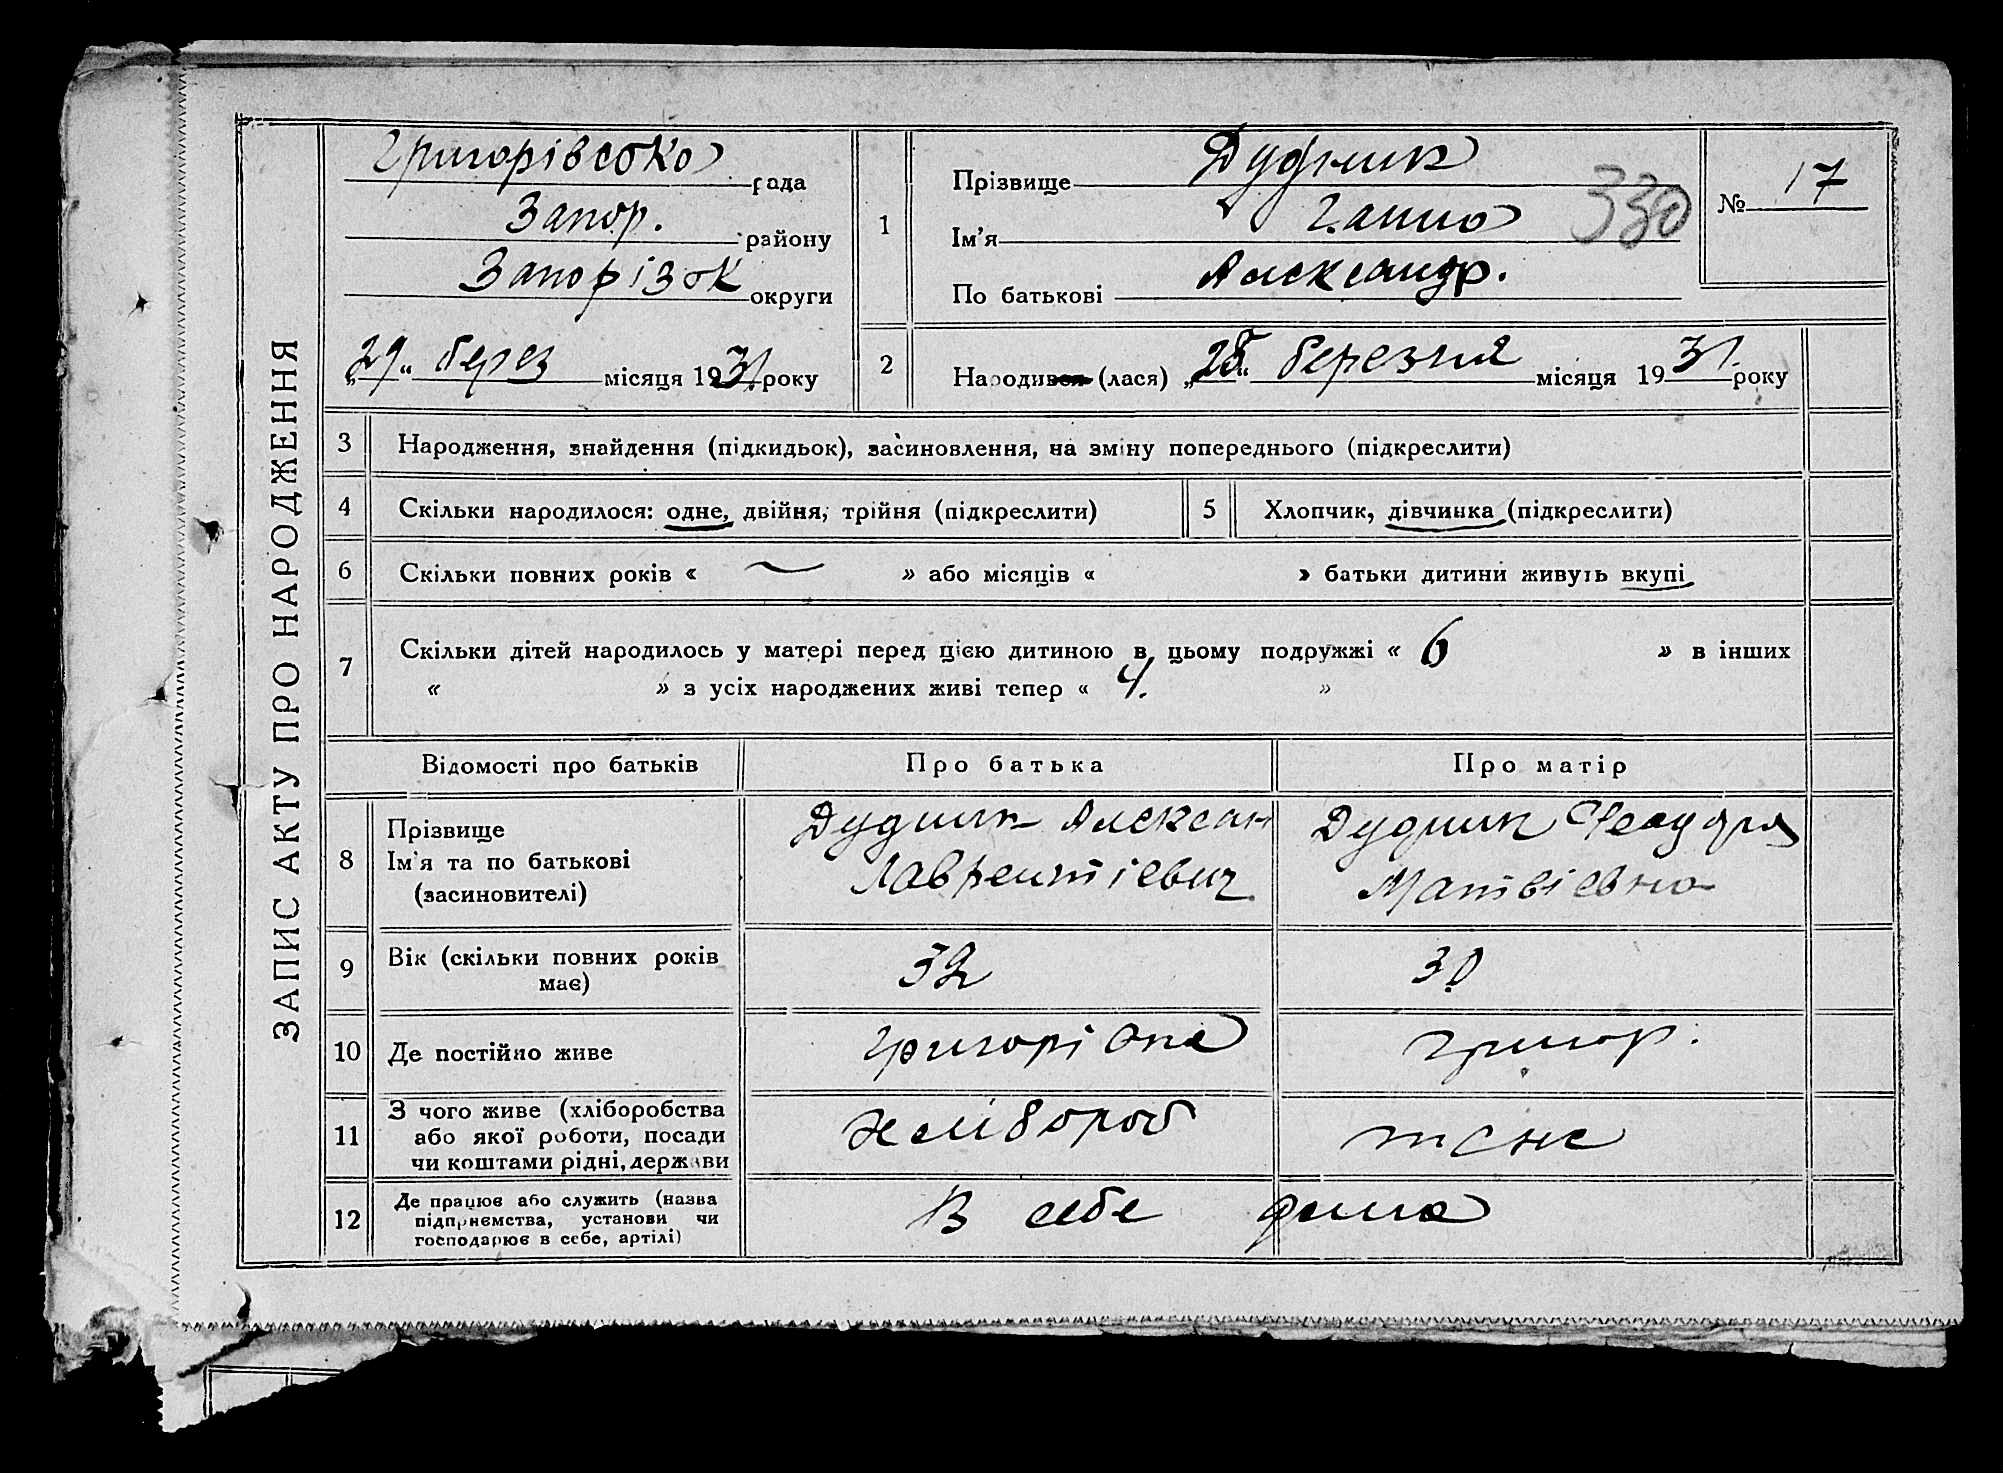 ЗАПИС АКТУ ПРО НАРОДЖЕННЯ
Григорівсько рада
Запор. району
Запорізьк округи
„29“ берез місяця 1931 року
1 Прізвище Дудник
Ім'я Ганна
По батькові Александр.
330
№ 17
2 Народився (лася) „28“ березня місяця 1931. року
3 Народження, знайдення (підкидьок), засиновлення, на зміну попереднього (підкреслити)
4 Скільки народилося: одне, двійня, трійня (підкреслити)
5 Хлопчик, дівчинка (підкреслити)
6 Скільки повних років « — » або місяців « » батьки дитини живуть вкупі
7 Скільки дітей народилось у матері перед цією дитиною в цьому подружжі « 6 » в інших
« » з усіх народжених живі тепер « 4. »
Відомості про батьків Про батька Про матір
8 Прізвище
Ім'я та по батькові
(засиновителі)
Дудник Алексан
Лаврентієвич
Дудник Феодора
Матвієвна
9 Вік (скільки повних років
має)
32
30
10 Де постійно живе
Григорівка
Григор.
11 З чого живе (хліборобства
або якої роботи, посади
чи коштами рідні, держави
хлібороб
теж
12 Де працює або служить (назва
підприємства, установи чи
господарює в себе, артілі)
В себе дома